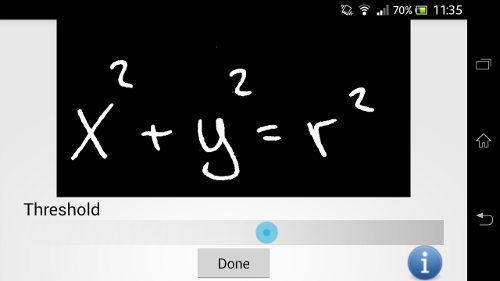 70% 11:35
x² + y² = r²
Threshold
Done
i